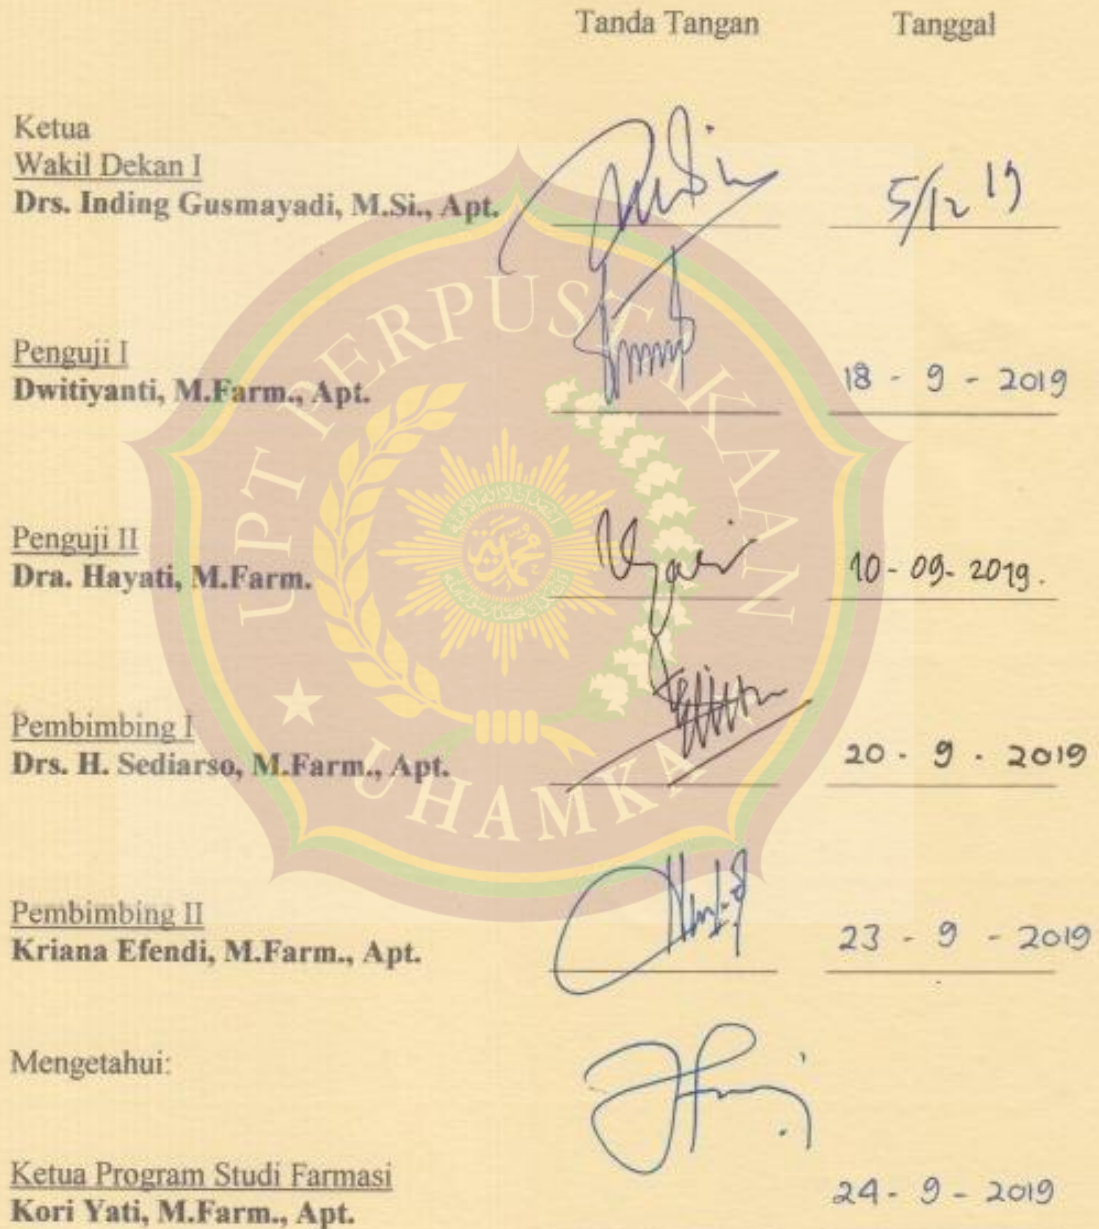 Tanda Tangan Tanggal
Ketua
Wakil Dekan I
Drs. Inding Gusmayadi, M.Si., Apt. 5/12 19
Penguji I
Dwitiyanti, M.Farm., Apt. 18 - 9 - 2019
Penguji II
Dra. Hayati, M.Farm. 10 - 09 - 2019.
Pembimbing I
Drs. H. Sediarso, M.Farm., Apt. 20 - 9 - 2019
Pembimbing II
Kriana Efendi, M.Farm., Apt. 23 - 9 - 2019
Mengetahui:
Ketua Program Studi Farmasi
Kori Yati, M.Farm., Apt. 24 - 9 - 2019
UPT PERPUSTAKAAN
UHAMKA